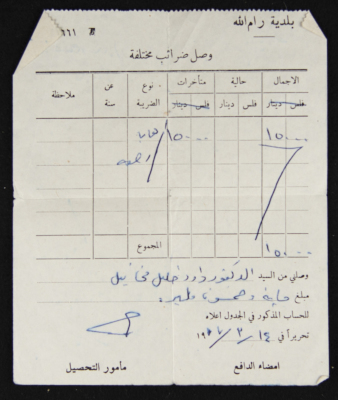 بلدية رام الله
٦٦١
وصل ضرائب مختلفة
الاجمال حالية متأخرات نوع الضريبة عن سنة ملاحظة
فلس دينار فلس دينار فلس دينار
١٥٠٠٠ ١٥٠٠٠
المجموع
١٥٠٠٠
وصلني من السيد الدكتور داود خليل مخائيل
مبلغ مايه وخمسون
للحساب المذكور في الجدول اعلاه
تحريراً في ١٤ / ٣ / ١٩
امضاء الدافع مأمور التحصيل